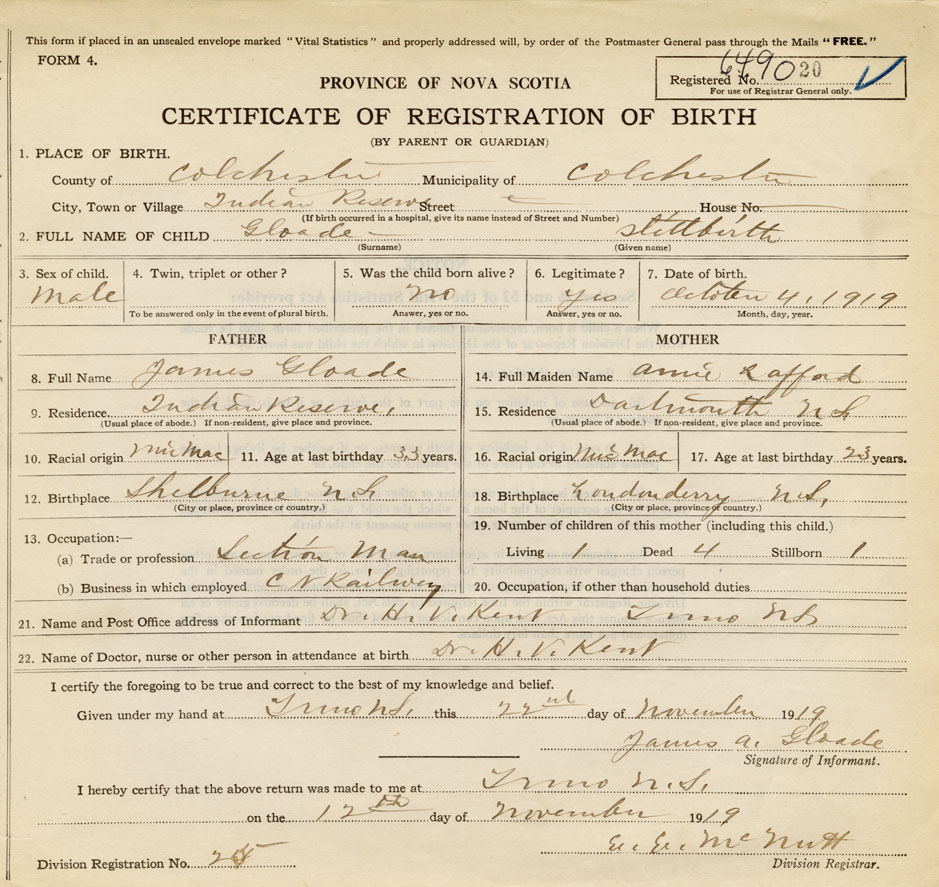 This form if placed in an unsealed envelope marked "Vital Statistics" and properly addressed will, by order of the Postmaster General pass through the Mails "FREE."
FORM 4.
Registered No. 6490 20
For use of Registrar General only.
PROVINCE OF NOVA SCOTIA
CERTIFICATE OF REGISTRATION OF BIRTH
(BY PARENT OR GUARDIAN)
1. PLACE OF BIRTH.
County of Colchester Municipality of Colchester
City, Town or Village Indian Reserve Street House No.
(If birth occurred in a hospital, give its name instead of Street and Number)
2. FULL NAME OF CHILD Gloade stillbirth
(Surname) (Given name)
3. Sex of child. 4. Twin, triplet or other? 5. Was the child born alive? 6. Legitimate? 7. Date of birth.
Male No Yes October 4, 1919
To be answered only in the event of plural birth. Answer, yes or no. Answer, yes or no. Month, day, year.
FATHER MOTHER
8. Full Name James Gloade 14. Full Maiden Name Annie Lafford
9. Residence Indian Reserve, 15. Residence Dartmouth N.S
(Usual place of abode.) If non-resident, give place and province. (Usual place of abode.) If non-resident, give place and province.
10. Racial origin MicMac 11. Age at last birthday 33 years. 16. Racial origin MicMac 17. Age at last birthday 23 years.
12. Birthplace Shelburne N.S. 18. Birthplace Londonderry N.S,
(City or place, province or country.) (City or place, province or country.)
13. Occupation:— 19. Number of children of this mother (including this child.)
(a) Trade or profession Section Man Living 1 Dead 4 Stillborn 1
(b) Business in which employed C N Railway 20. Occupation, if other than household duties
21. Name and Post Office address of Informant Dr. H. V. Kent Truro N.S
22. Name of Doctor, nurse or other person in attendance at birth Dr. H. V. Kent
I certify the foregoing to be true and correct to the best of my knowledge and belief.
Given under my hand at Truro N.S. this 22nd day of November 1919
James A. Gloade
Signature of Informant.
I hereby certify that the above return was made to me at Truro N.S.
on the 12th day of November 1919
E. E. McNutt
Division Registration No. Division Registrar.